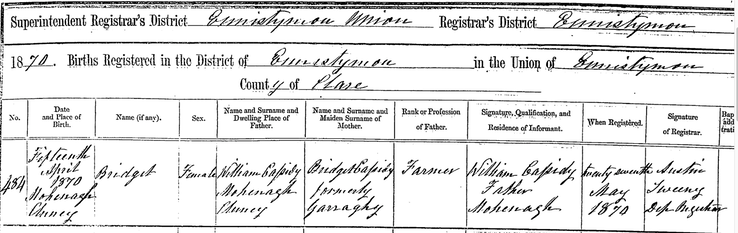 Superintendent Registrar's District Ennistymon Union Registrar's District Ennistymon
1870. Births Registered in the District of Ennistymon in the Union of Ennistymon
County of Clare
No. Date and Place of Birth. Name (if any). Sex. Name and Surname and Dwelling Place of Father. Name and Surname and Maiden Surname of Mother. Rank or Profession of Father. Signature, Qualification, and Residence of Informant. When Registered. Signature of Registrar.
484
Fifteenth
April
1870
Mohenagh
Cluney
Bridget
Female
William Cassidy
Mohenagh
Cluney
Bridget Cassidy
formerly
Garraghy
Farmer
William Cassidy
Father
Mohenagh
twenty seventh
May
1870
Austin
Tweeny
Dep Registrar